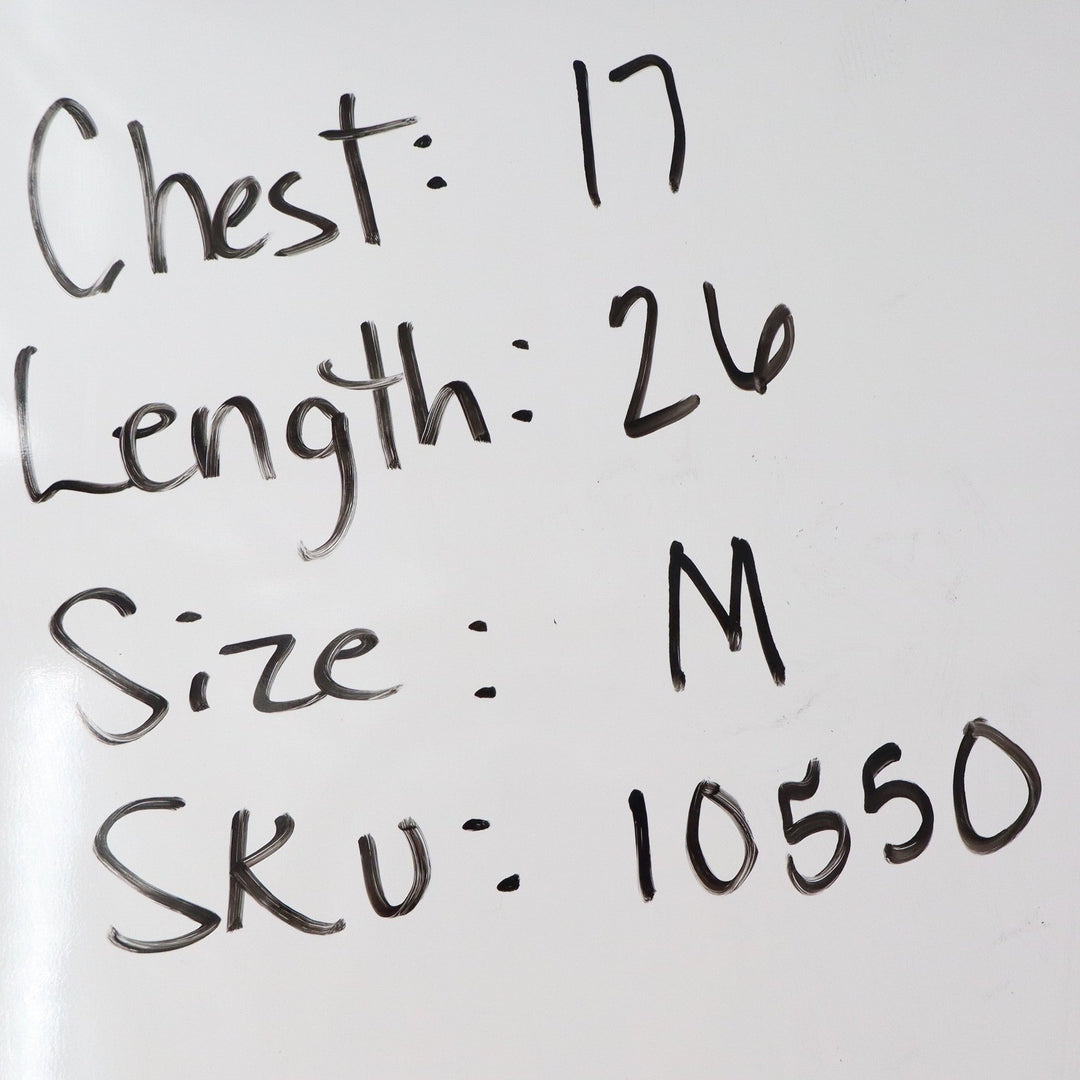 Chest: 17
Length: 26
Size: M
SKU: 10550